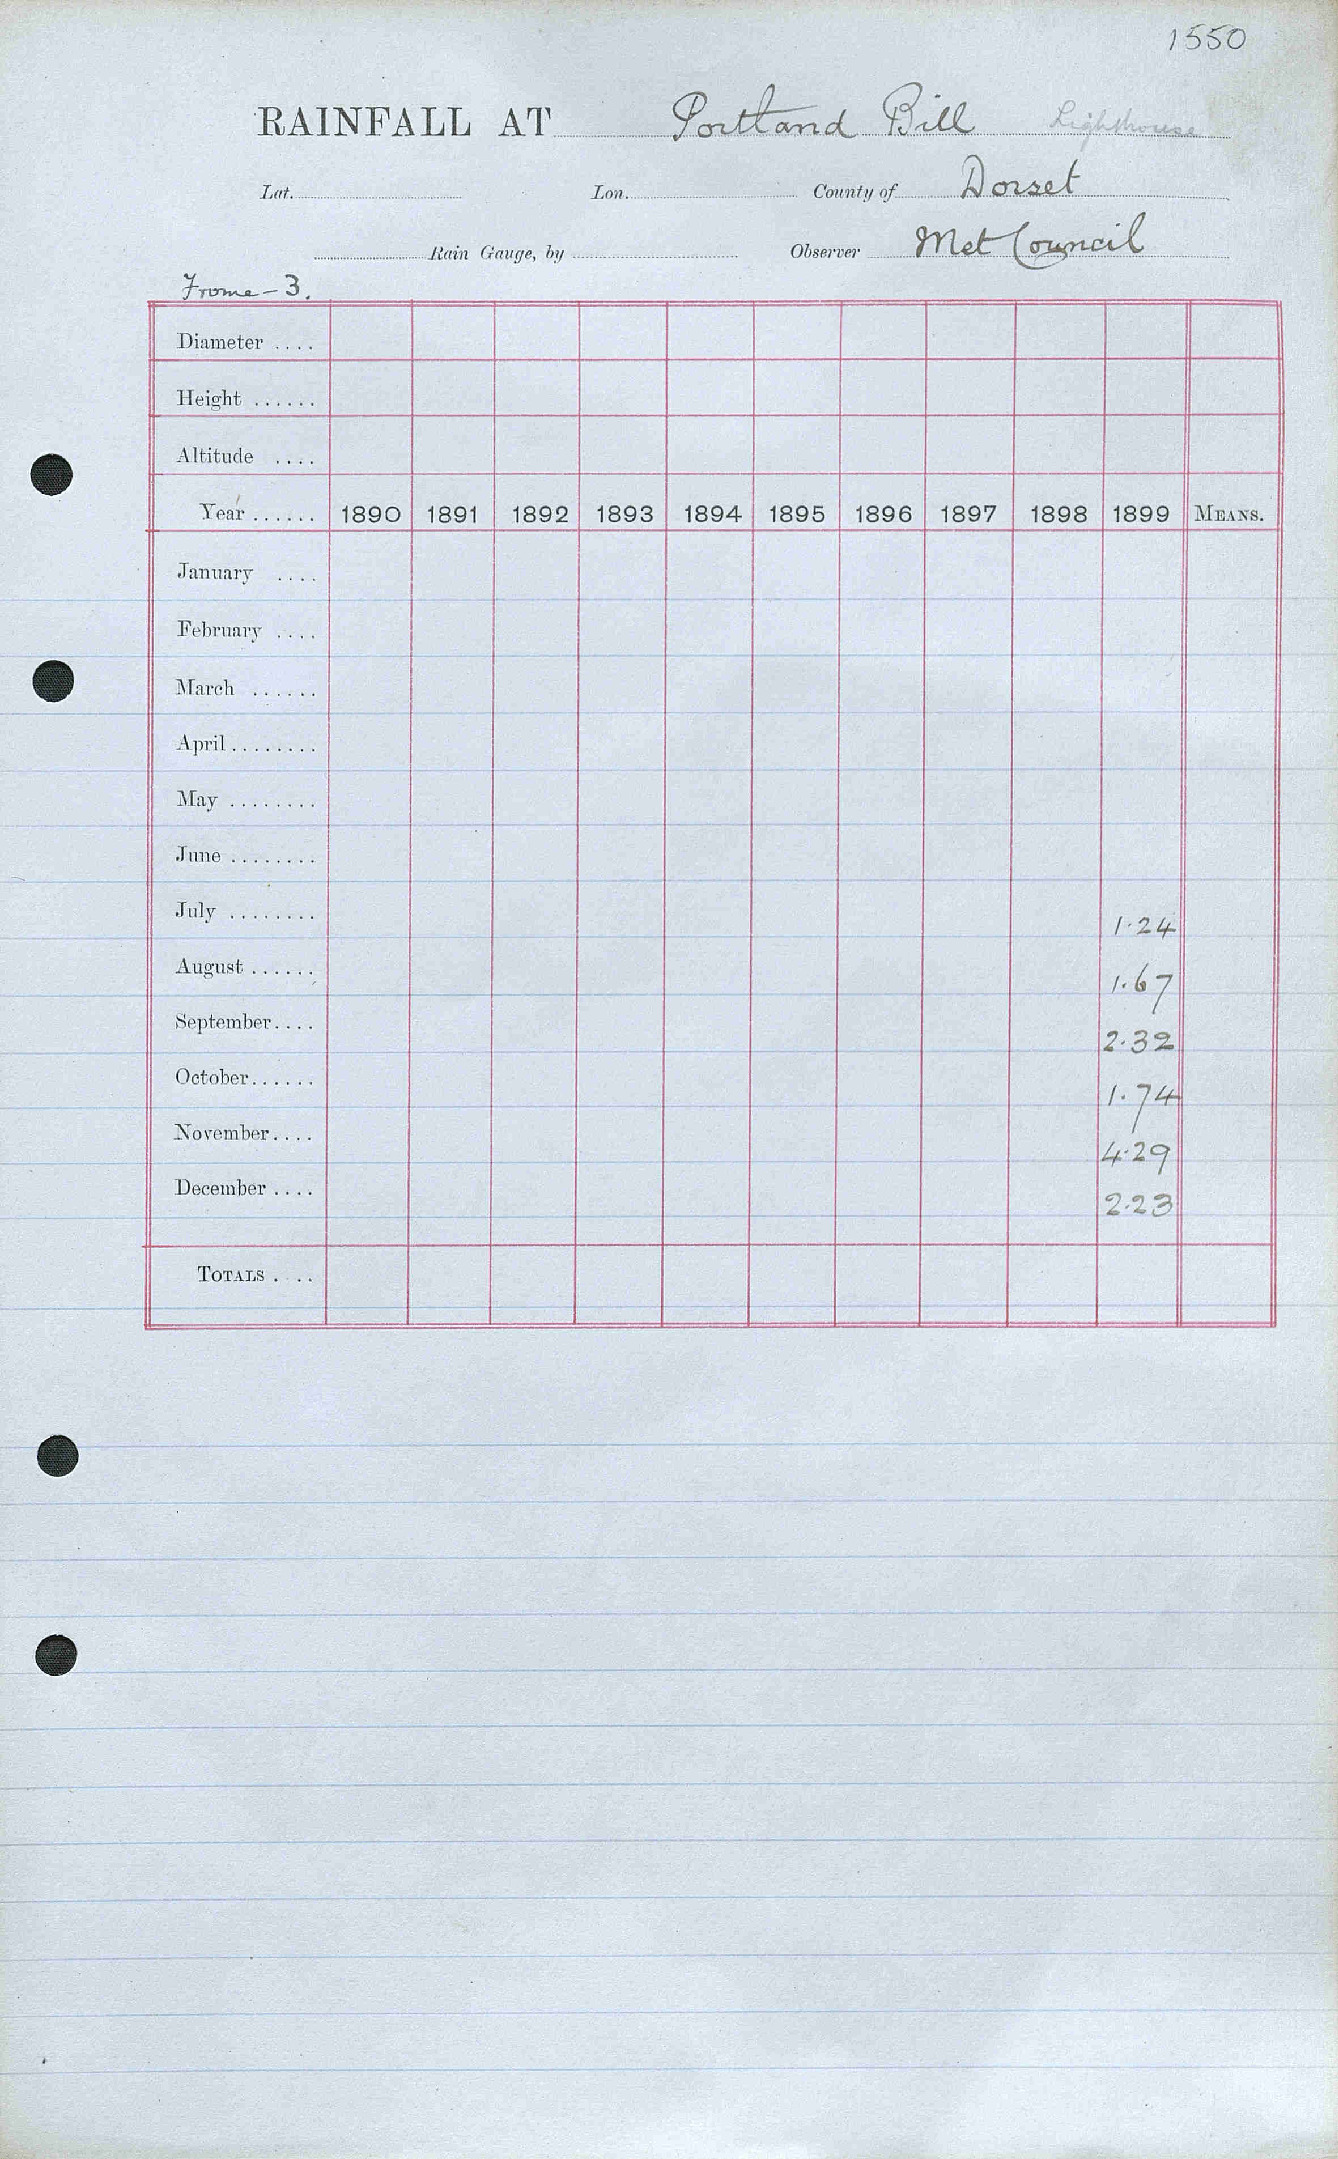 1550
RAINFALL AT Portland Bill Lighthouse
Lat. Lon. County of Dorset
Rain Gauge, by Observer Met Council
Frome - 3.
Diameter ....
Height ......
Altitude ....
Year ...... 1890 1891 1892 1893 1894 1895 1896 1897 1898 1899 MEANS.
January ....
February ....
March ......
April ........
May ........
June ........
July ........ 1.24
August ...... 1.67
September .... 2.32
October ...... 1.74
November .... 4.29
December .... 2.23
TOTALS ....